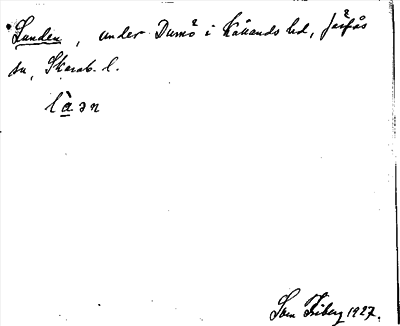 Lunden, under Dumö i Kållands hd, Järpås
sn, Skarab. l.
là̱ən
Sven Friberg 1927.